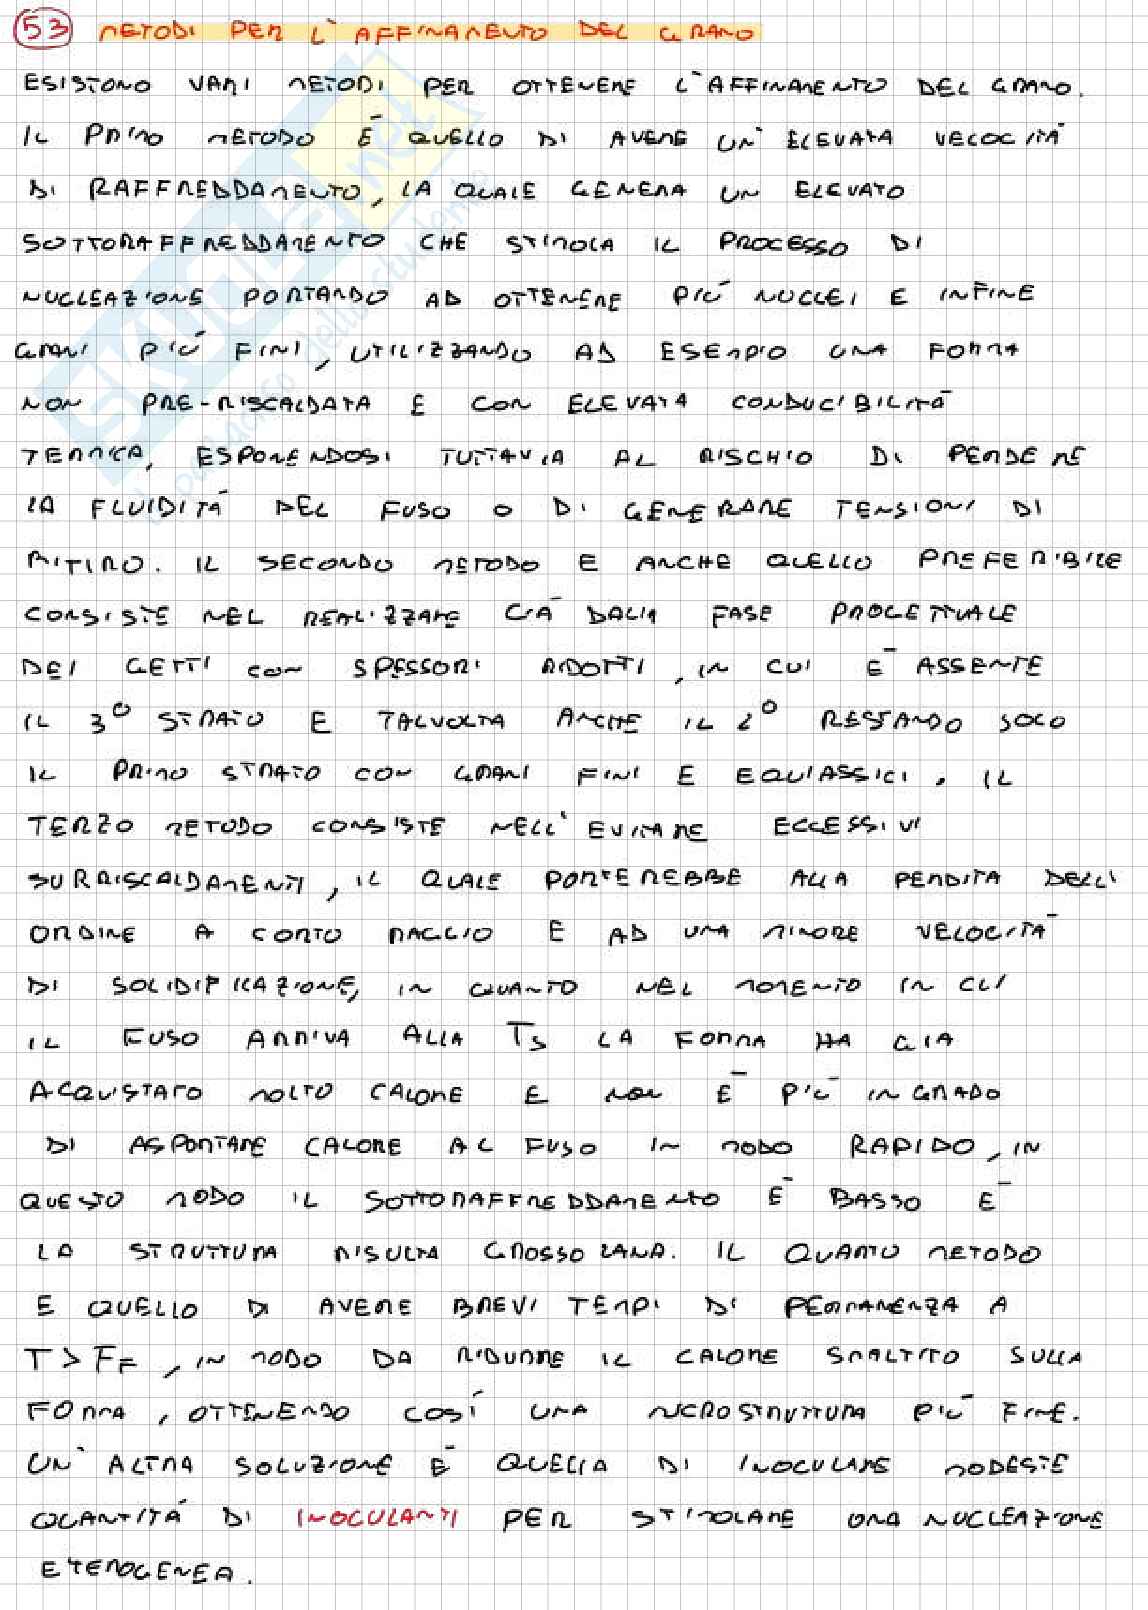 53 METODI PER L'AFFINAMENTO DEL GRANO
ESISTONO VARI METODI PER OTTENERE L'AFFINAMENTO DEL GRANO.
IL PRIMO METODO È QUELLO DI AVERE UN'ELEVATA VELOCITÀ
DI RAFFREDDAMENTO, LA QUALE GENERA UN ELEVATO
SOTTORAFFREDDAMENTO CHE STIMOLA IL PROCESSO DI
NUCLEAZIONE PORTANDO AD OTTENERE PIÙ NUCLEI E INFINE
GRANI PIÙ FINI, UTILIZZANDO AD ESEMPIO UNA FORMA
NON PRE-RISCALDATA E CON ELEVATA CONDUCIBILITÀ
TERMICA, ESPONENDOSI TUTTAVIA AL RISCHIO DI PERDERE
LA FLUIDITÀ DEL FUSO O DI GENERARE TENSIONI DI
RITIRO. IL SECONDO METODO E ANCHE QUELLO PREFERIBILE
CONSISTE NEL REALIZZARE GIÀ DALLA FASE PROGETTUALE
DEI GETTI CON SPESSORI RIDOTTI, IN CUI È ASSENTE
IL 3° STRATO E TALVOLTA ANCHE IL 2° RESTANDO SOLO
IL PRIMO STRATO CON GRANI FINI E EQUIASSICI. IL
TERZO METODO CONSISTE NELL'EVITARE ECCESSIVI
SURRISCALDAMENTI, IL QUALE PORTEREBBE ALLA PERDITA DELL'
ORDINE A CORTO RAGGIO E AD UNA MINORE VELOCITÀ
DI SOLIDIFICAZIONE, IN QUANTO NEL MOMENTO IN CUI
IL FUSO ARRIVA ALLA Ts LA FORMA HA GIA
ACQUISTATO MOLTO CALORE E NON È PIÙ IN GRADO
DI ASPORTARE CALORE AL FUSO IN MODO RAPIDO, IN
QUESTO MODO IL SOTTORAFFREDDAMENTO È BASSO E
LA STRUTTURA RISULTA GROSSOLANA. IL QUARTO METODO
E QUELLO DI AVERE BREVI TEMPI DI PERMANENZA A
T > FF, IN MODO DA RIDURRE IL CALORE SMALTITO SULLA
FORMA, OTTENENDO COSÌ UNA MICROSTRUTTURA PIÙ FINE.
UN'ALTRA SOLUZIONE È QUELLA DI INOCULARE MODESTE
QUANTITÀ DI INOCULANTI PER STIMOLARE UNA NUCLEAZIONE
ETEROGENEA.